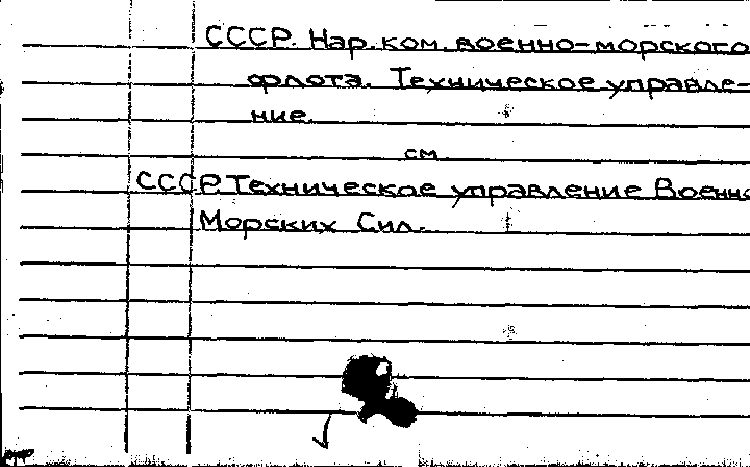 СССР. Нар. ком. военно-морского
флота. Техническое управле-
ние.
см.
СССР. Техническое управление Военно
Морских Сил.